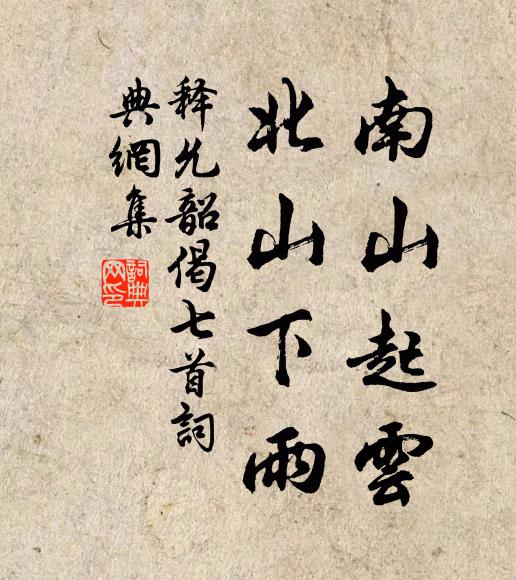 南山起雲
北山下雨
释允韶偈七首詞
典網集
詞典
网印